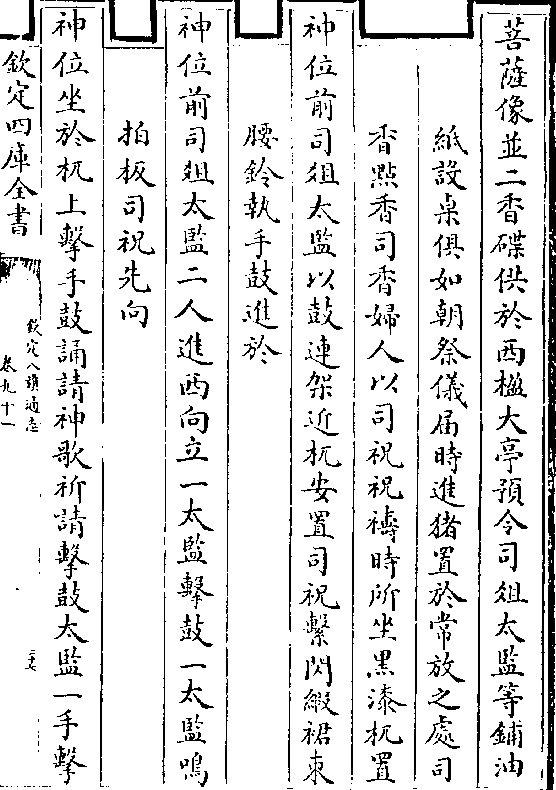 菩薩像並二香碟供於西楹大亭預令司俎太監等鋪油
紙設桌俱如朝祭儀屆時進猪置於常放之處司
香點香司香婦人以司祝祝禱時所坐黑漆杌置
神位前司俎太監以鼓連架近杌安置司祝繫閃緞裙束
腰鈴執手鼓進於
神位前司俎太監二人進西向立一太監擊鼓一太監鳴
拍板司祝先向
神位坐於杌上擊手鼓誦請神歌祈請擊鼓太監一手擊
欽定四庫全書
欽定八旗通志
卷九十一
三七